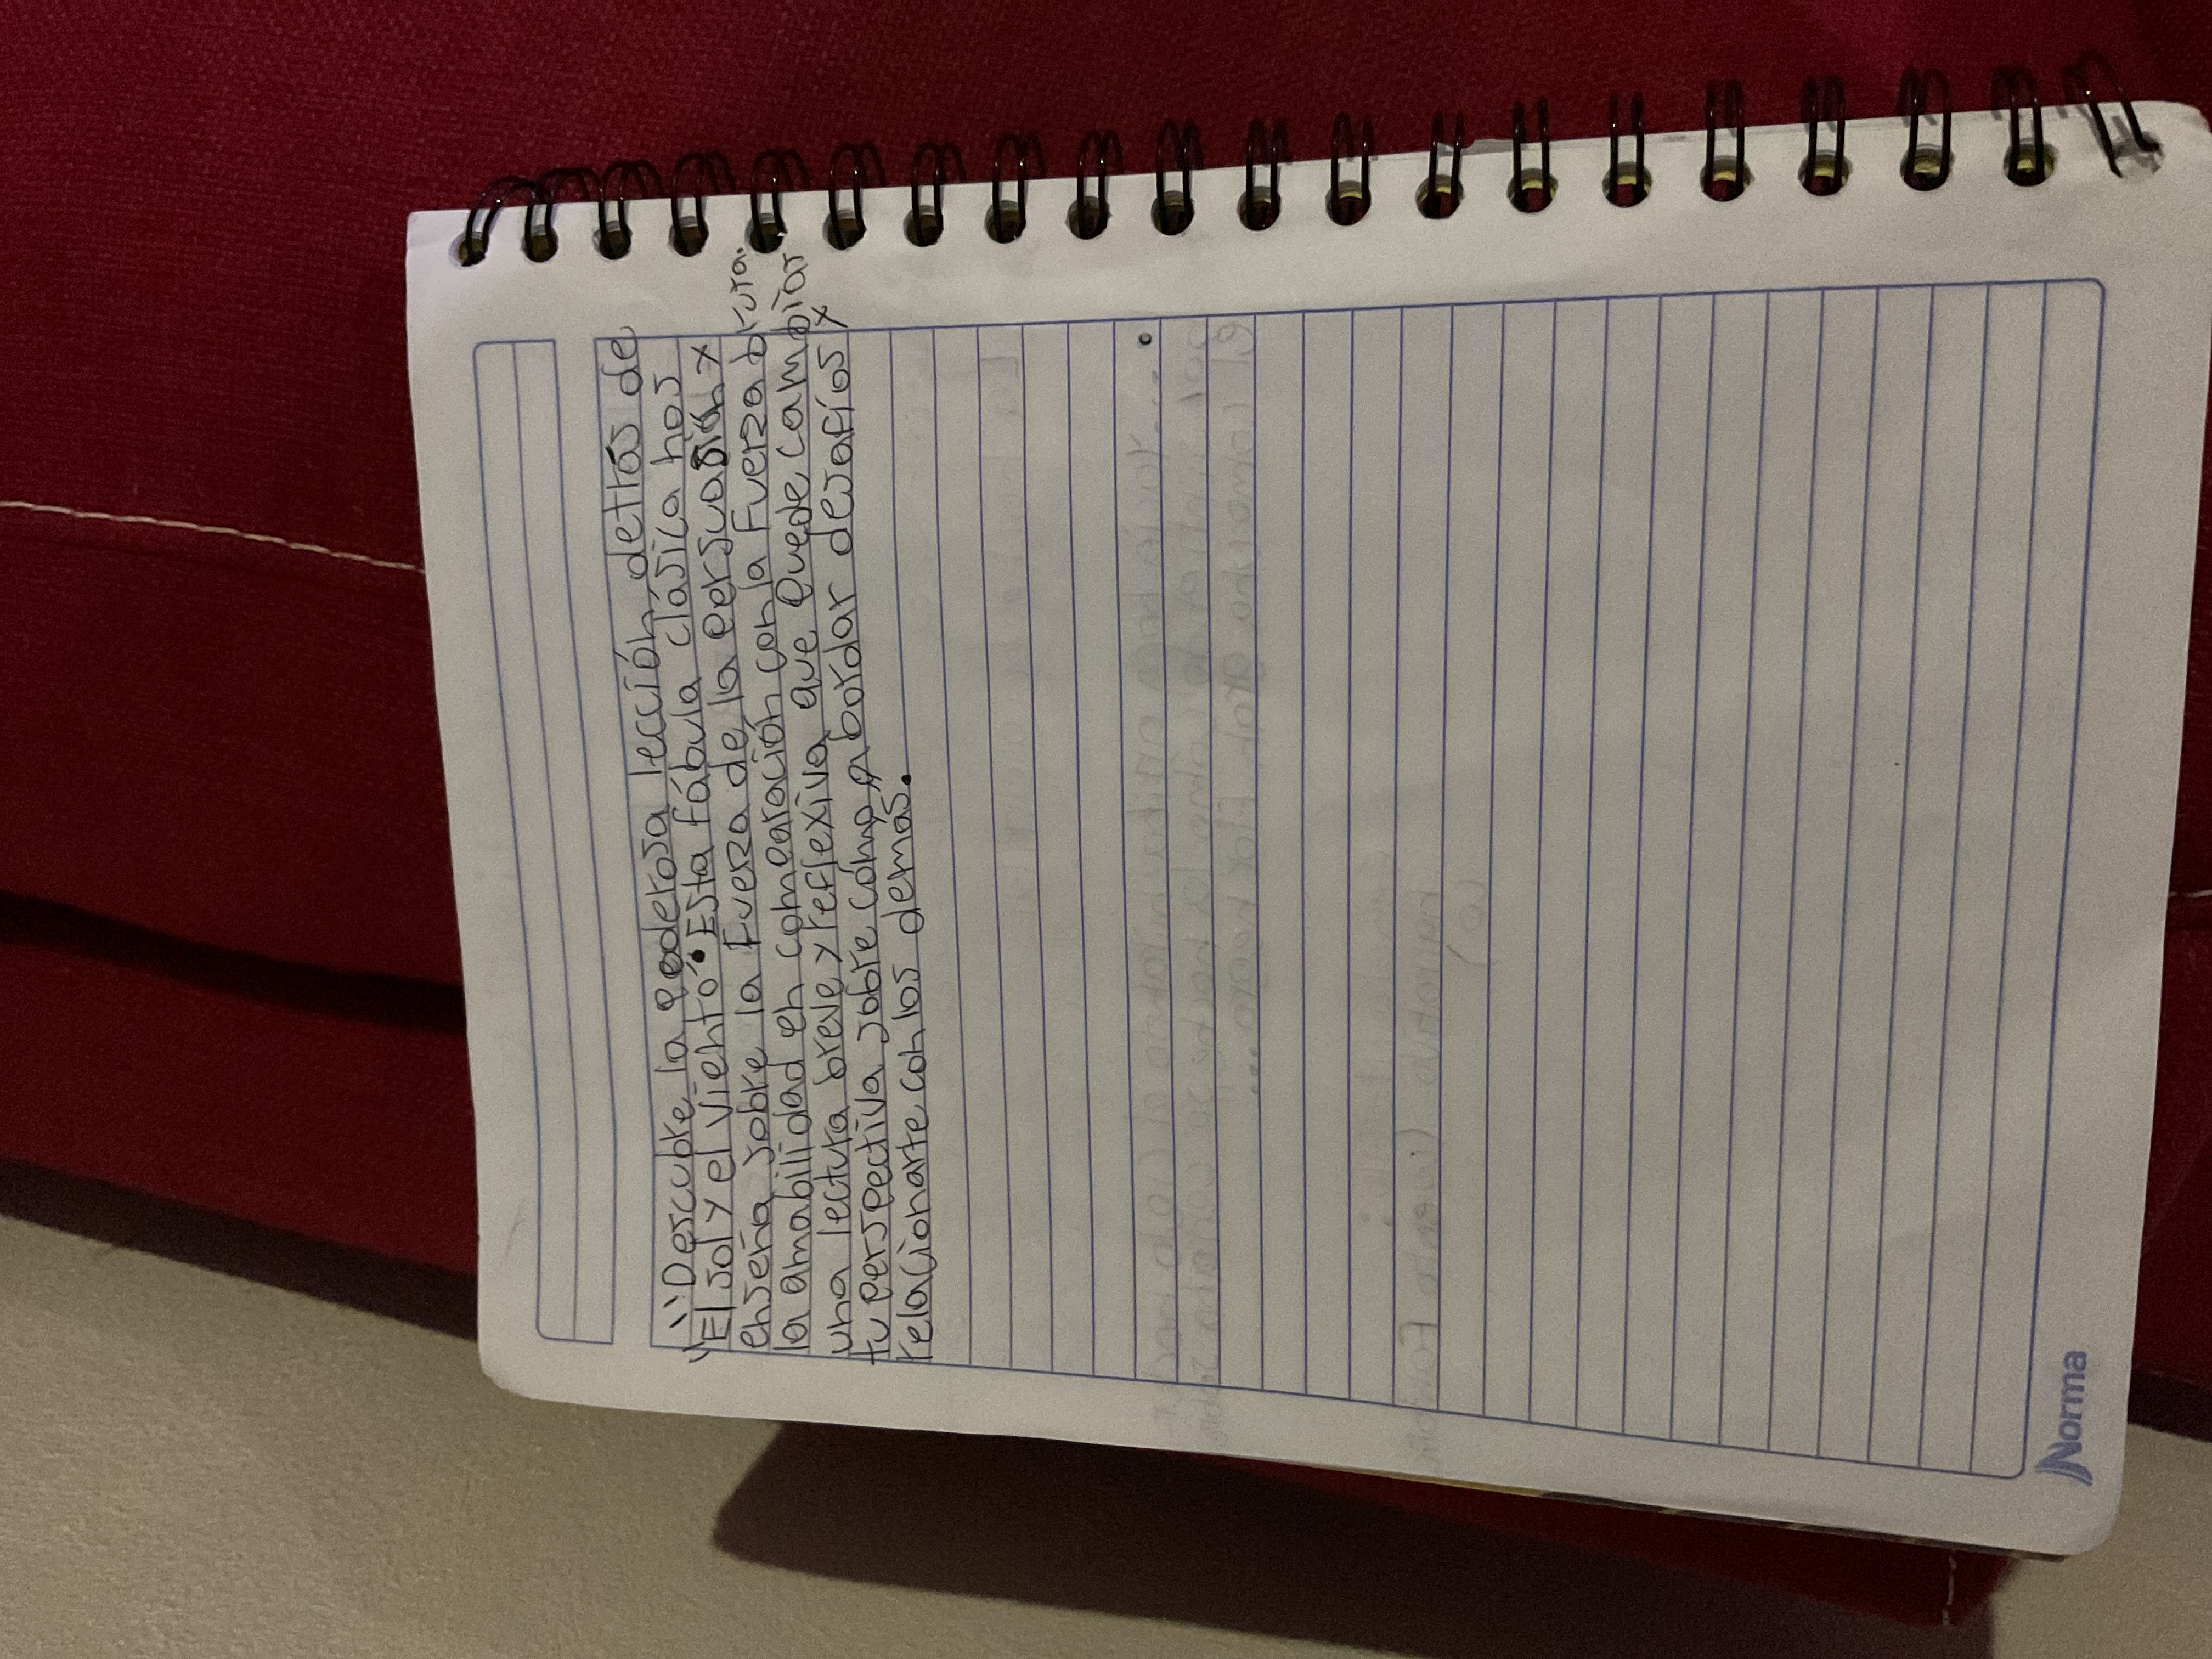 "Descubre la poderosa lección detrás de
"El sol y el viento". Esta fábula clásica nos
enseña sobre la fuerza de la persuasión y
la amabilidad en comparación con la fuerza bruta.
una lectura breve y reflexiva que puede cambiar
tu perspectiva sobre cómo abordar desafíos y
relacionarte con los demás.
Norma